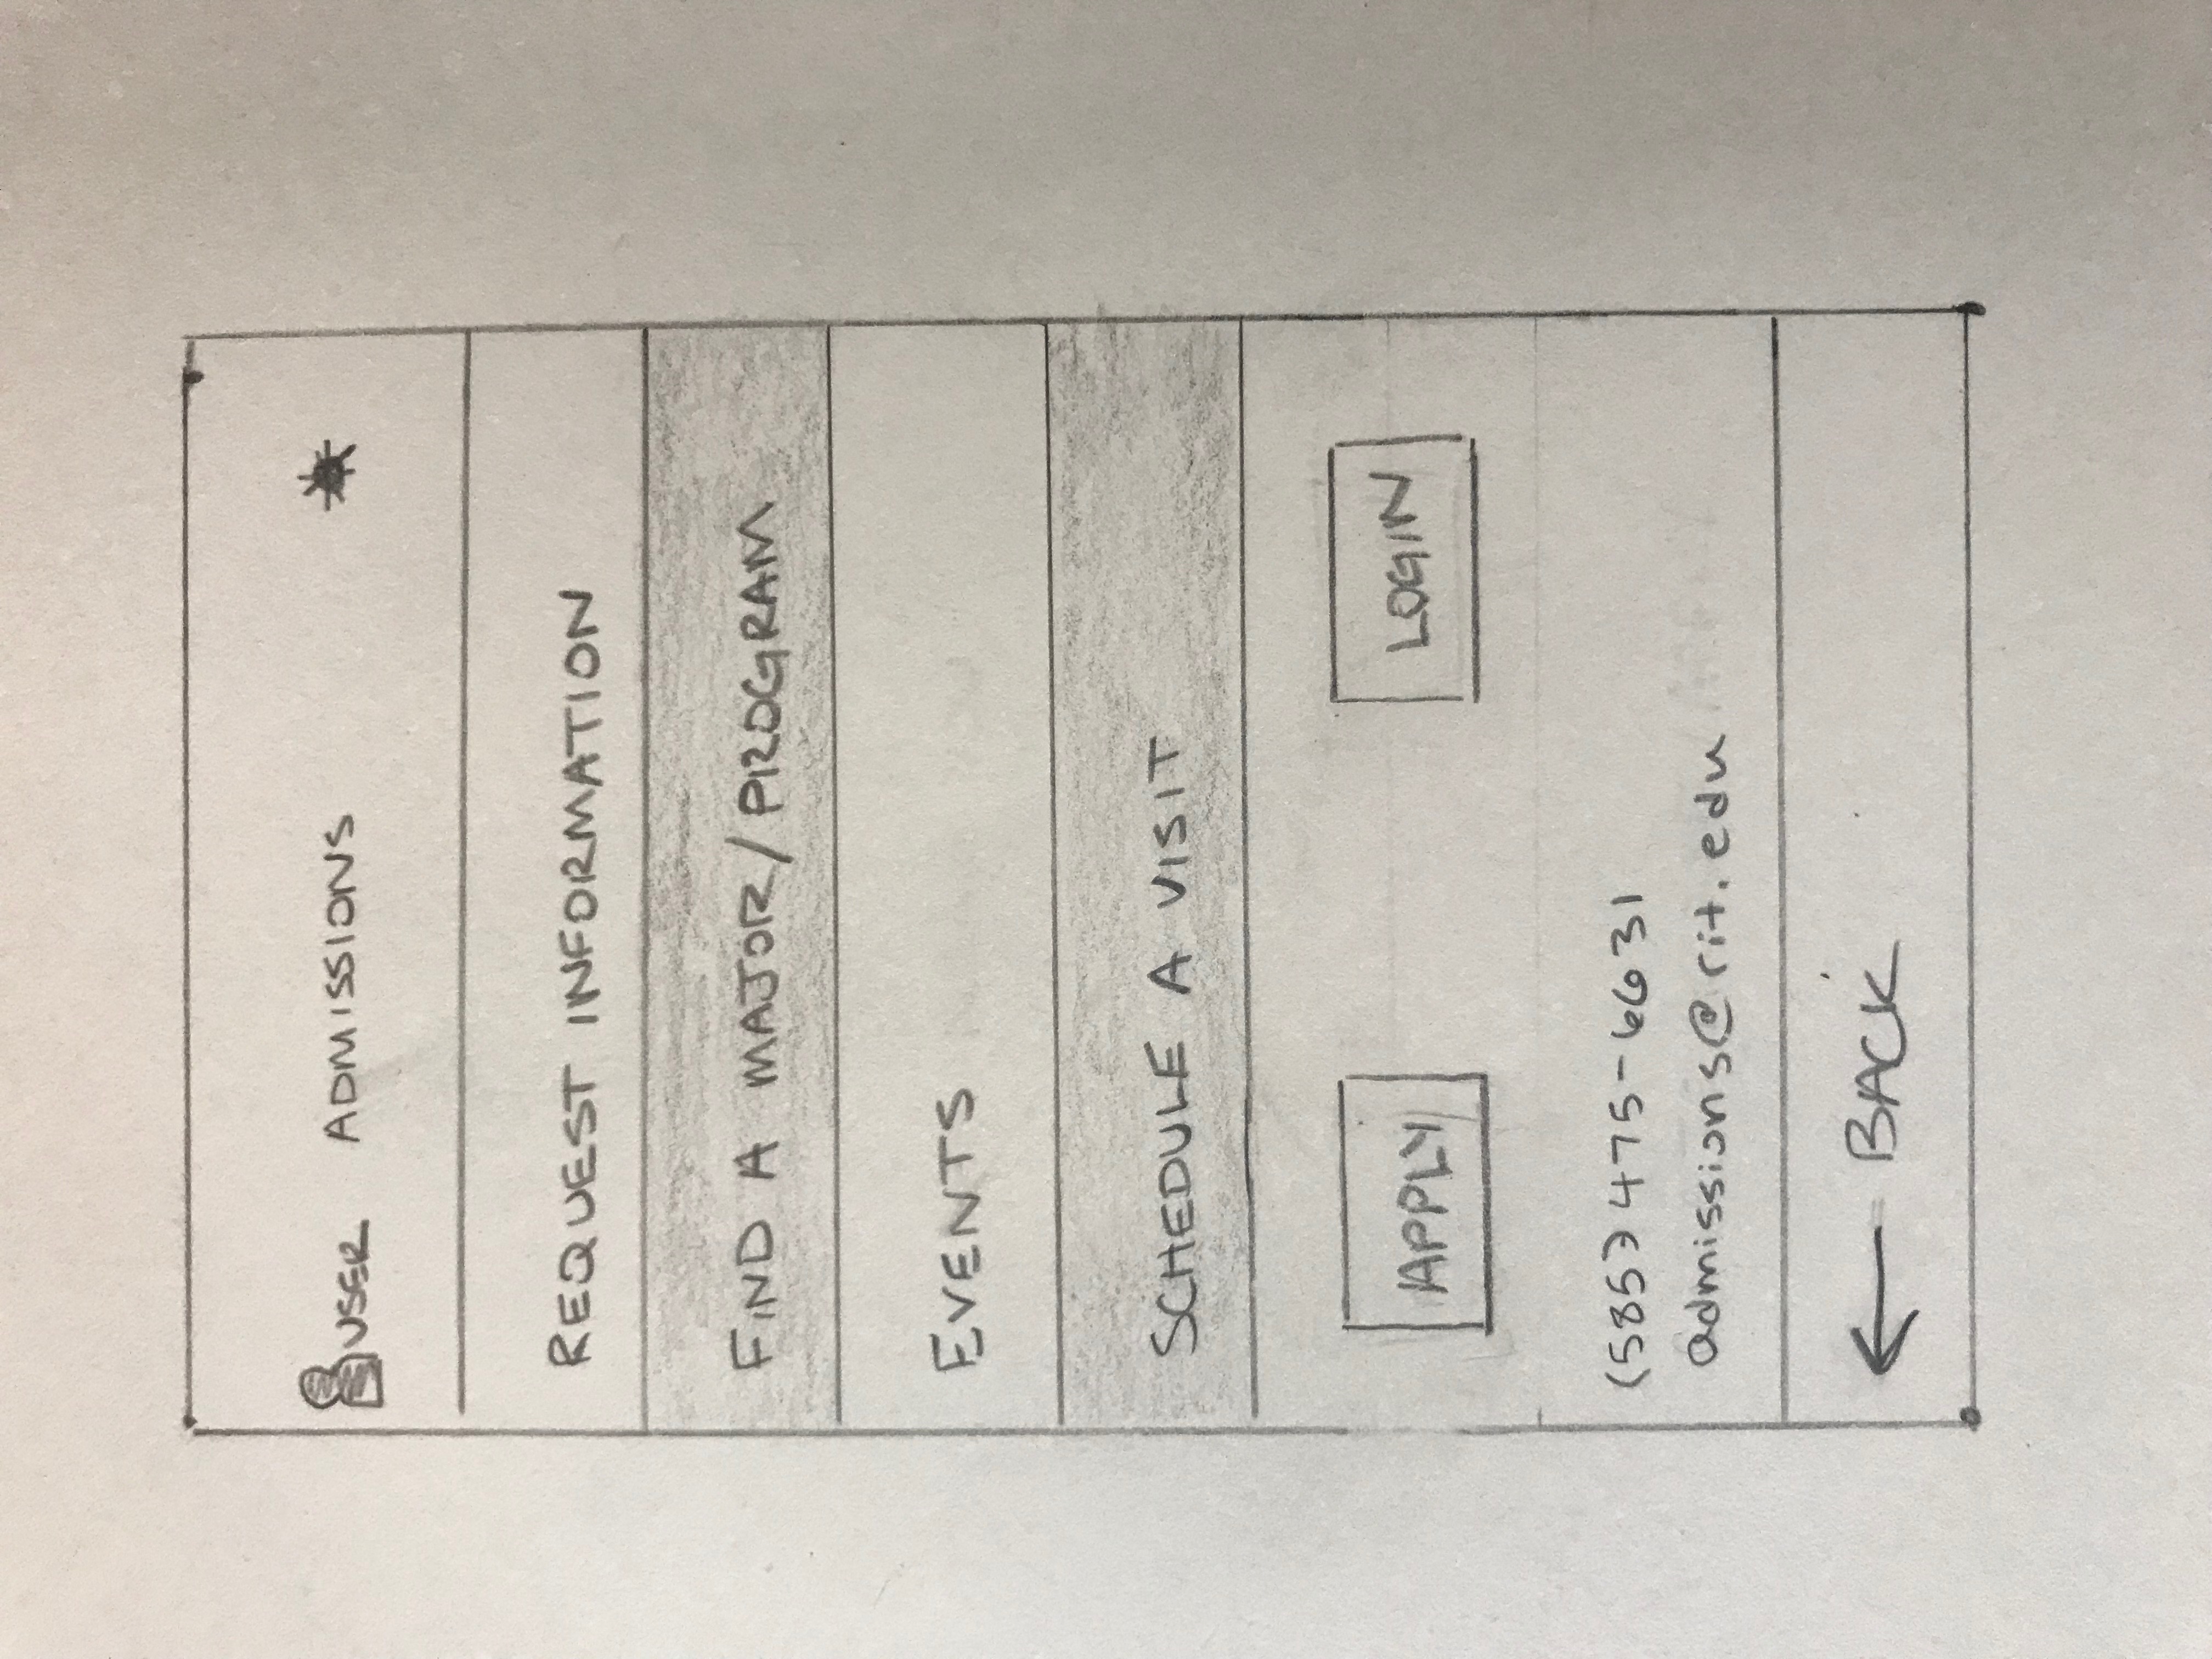 USER ADMISSIONS
REQUEST INFORMATION
FIND A MAJOR/PROGRAM
EVENTS
SCHEDULE A VISIT
APPLY LOGIN
(585) 475-6631
admissions@rit.edu
← BACK